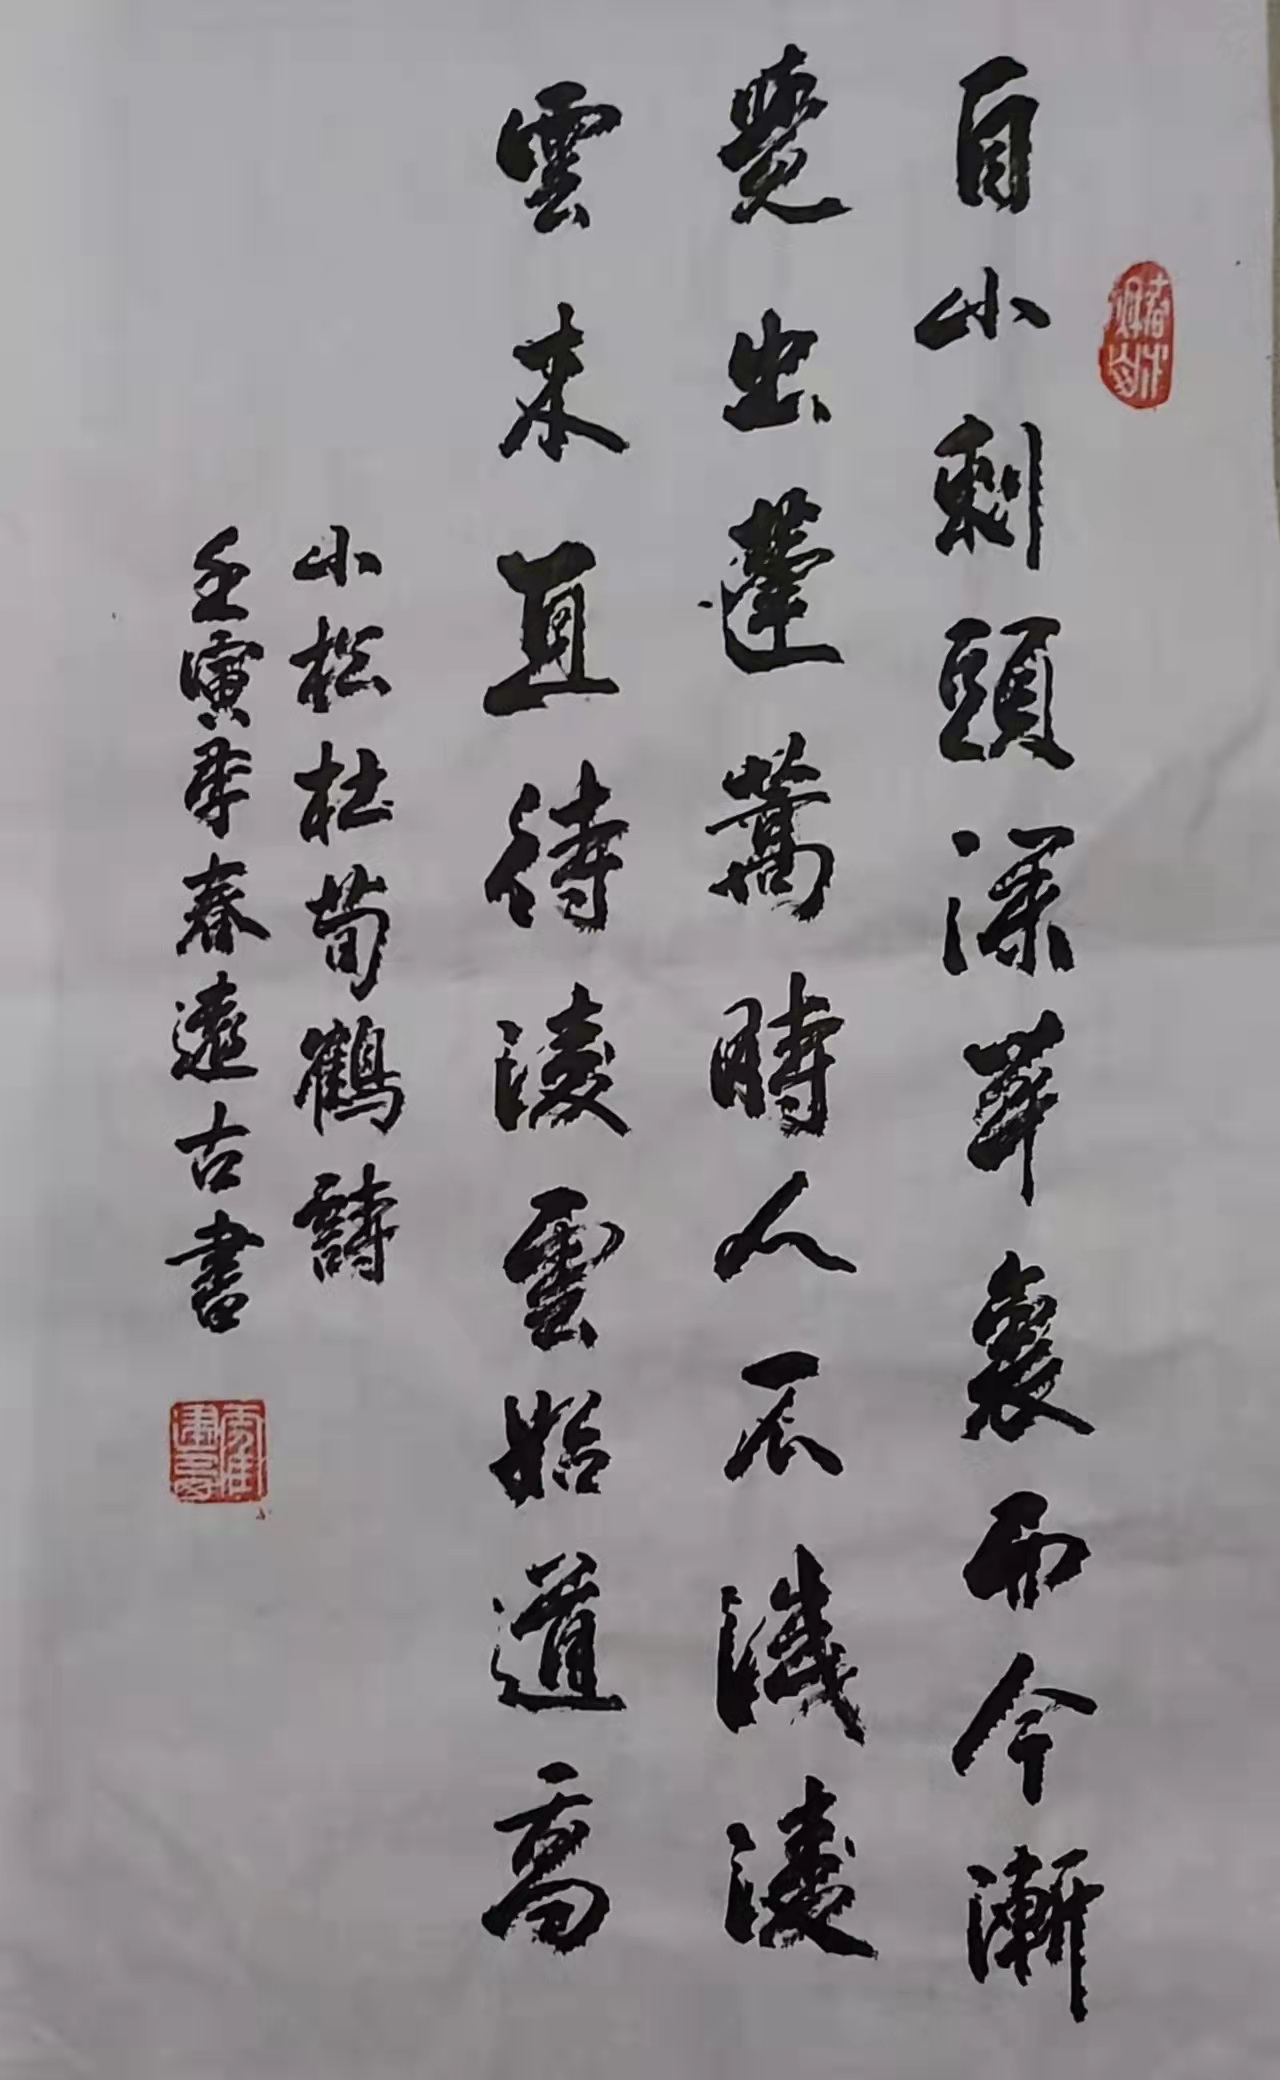 自小刺頭深草裏而今漸
覺出蓬蒿時人不識凌
雲木直待凌雲始道高
小松杜荀鶴詩
壬寅季春遠古書